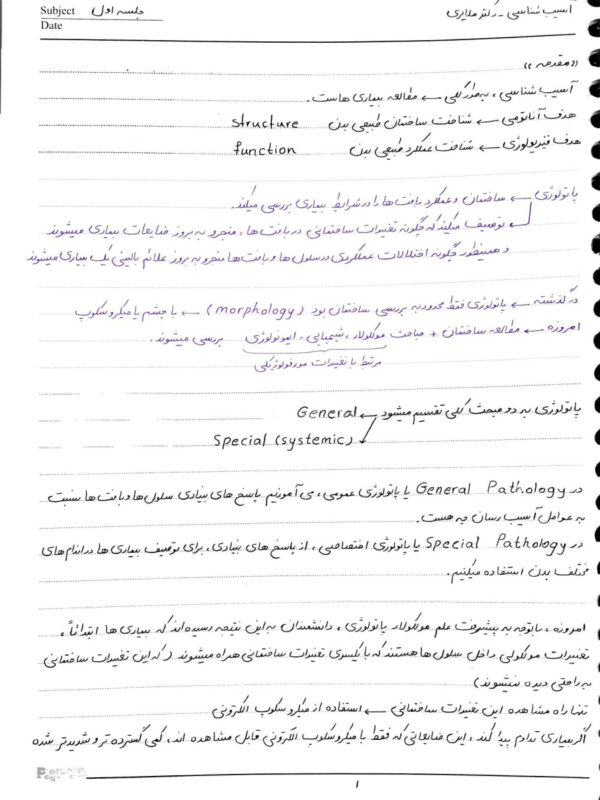 Subject جلسه اول
آسیب شناسی - دکتر ملایری
Date
«مقدمه»
آسیب شناسی، به طور کلی ← مطالعه بیماری هاست.
هدف آناتومی ← شناخت ساختمان طبیعی بدن structure
هدف فیزیولوژی ← شناخت عملکرد طبیعی بدن function
پاتولوژی ← ساختمان و عملکرد بافت ها را در شرایط بیماری بررسی میکند.
توصیف میکند که چگونه تغییرات ساختمانی در بافت ها، منجر به بروز ضایعات بیماری میشوند
و همینطور چگونه اختلالات عملکردی در سلول ها و بافت ها منجر به بروز علائم بالینی یک بیماری میشوند
در گذشته ← پاتولوژی فقط محدود به بررسی ساختمان بود (morphology) ← با چشم یا میکروسکوپ
امروزه ← مطالعه ساختمان + مباحث مولکولار، شیمیایی، ایمونولوژی بررسی میشوند.
مرتبط با تغییرات مورفولوژیکی
پاتولوژی به دو مبحث کلی تقسیم میشود ← General
Special (systemic)
در General Pathology یا پاتولوژی عمومی، می آموزیم پاسخ های بنیادی سلول ها و بافت ها نسبت
به عوامل آسیب رسان چه هست.
در Special Pathology یا پاتولوژی اختصاصی، از پاسخ های بنیادی، برای توصیف بیماری ها در اندام های
مختلف بدن استفاده میکنیم.
امروزه، باتوجه به پیشرفت علم مولکولار پاتولوژی، دانشمندان به این نتیجه رسیده اند که بیماری ها ابتدائاً،
تغییرات مولکولی داخل سلول ها هستند که با یکسری تغییرات ساختمانی همراه میشوند (که این تغییرات ساختمانی
به راحتی دیده نمیشوند)
تنها راه مشاهده این تغییرات ساختمانی ← استفاده از میکروسکوپ الکترونی
اگر بیماری تداوم پیدا کند، این ضایعاتی که فقط با میکروسکوپ الکترونی قابل مشاهده اند، کمی گسترده تر و شدیدتر شده
۱